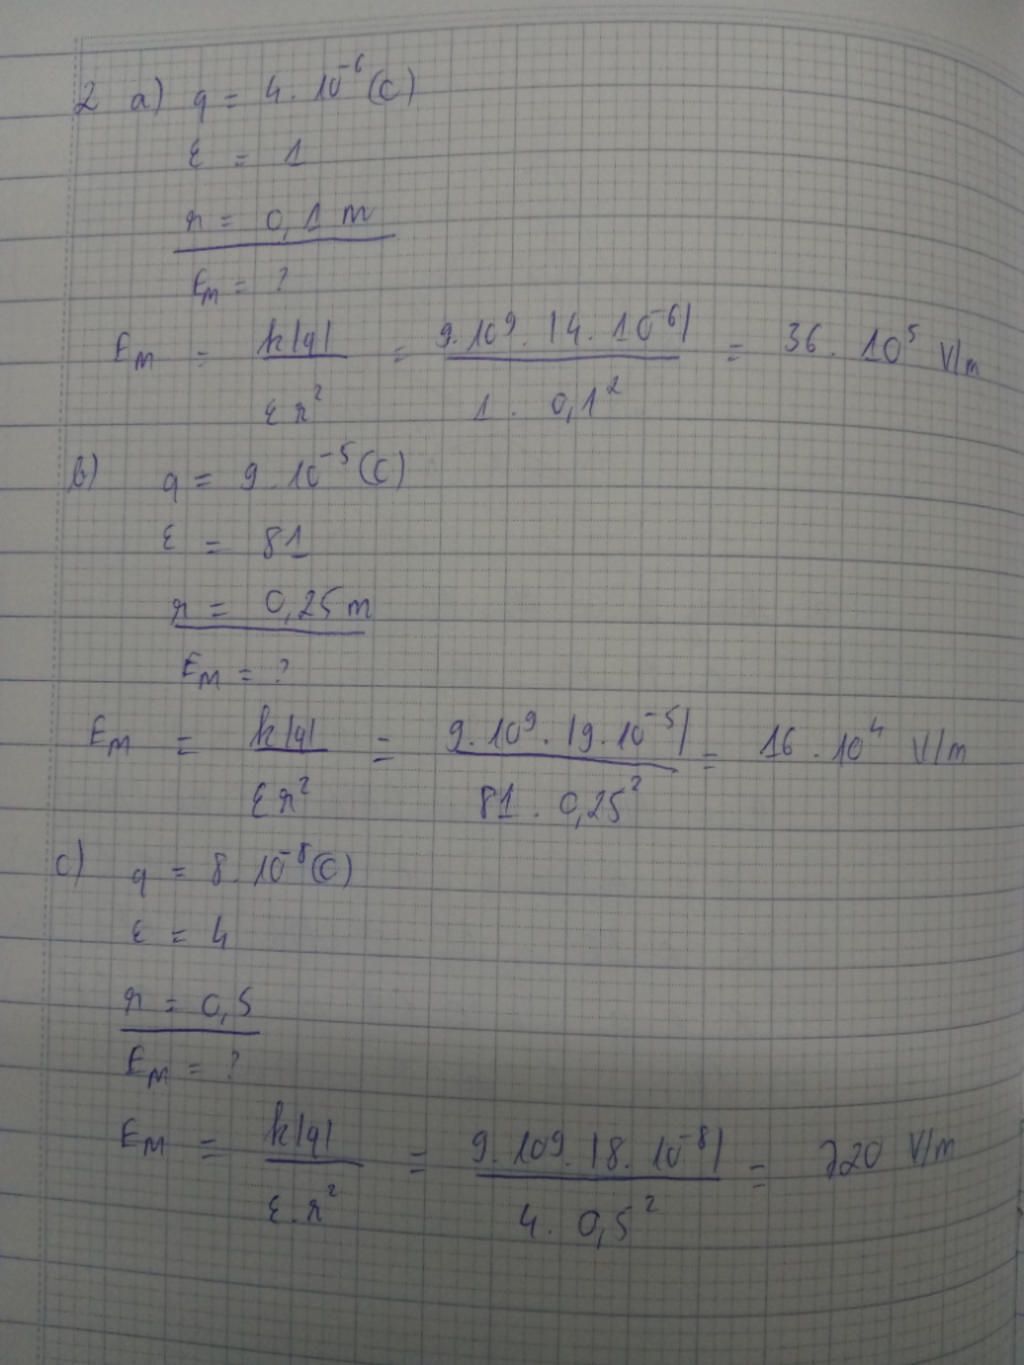 2 a) q = 4. 10⁻⁶ (C)
ε = 1
r = 0,1 m
E_M = ?
E_M = k|q| / εr² = 9.10⁹. |4. 10⁻⁶| / 1 . 0,1² = 36. 10⁵ V/m
b) q = 9. 10⁻⁵ (C)
ε = 81
r = 0,25 m
E_M = ?
E_M = k|q| / εr² = 9. 10⁹. |9. 10⁻⁵| / 81 . 0,25² = 16 . 10⁴ V/m
c) q = 8. 10⁻⁸ (C)
ε = 4
r = 0,5
E_M = ?
E_M = k|q| / ε.r² = 9. 10⁹. |8. 10⁻⁸| / 4. 0,5² = 720 V/m